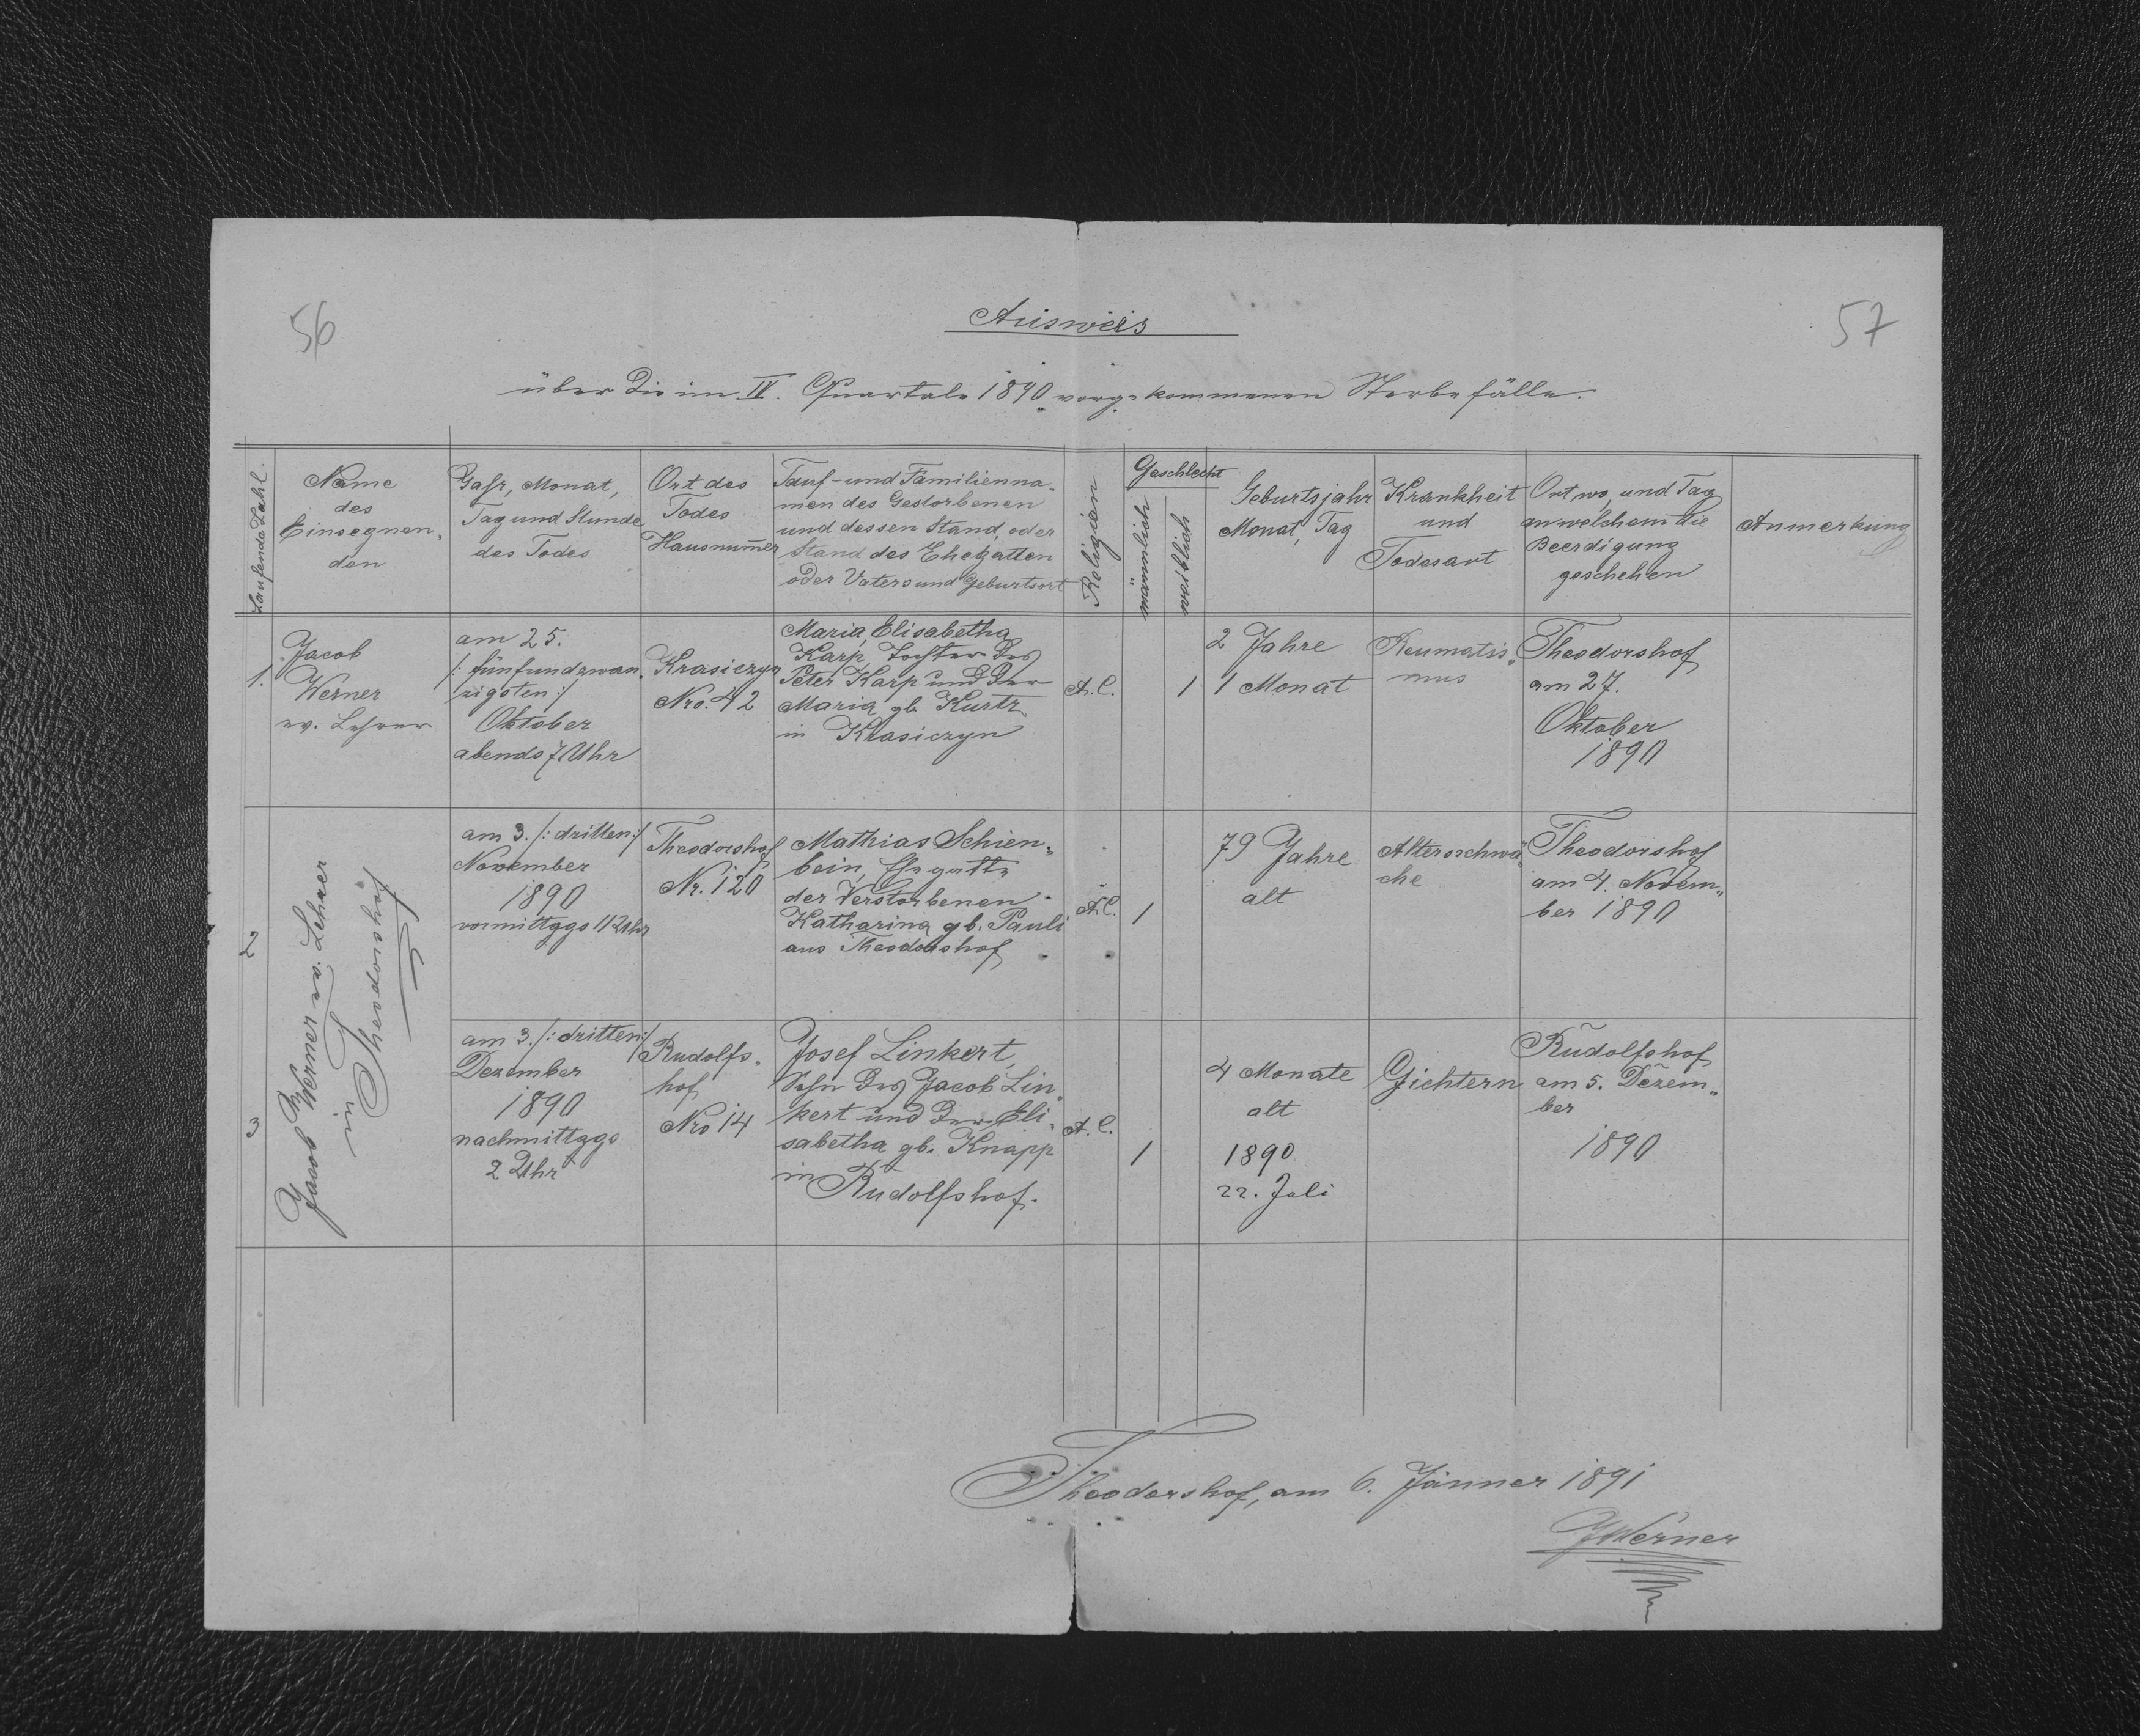 56
57
Ausweis
über die im IV. Quartale 1890 vorgekommenen Sterbefälle.
Laufende Zahl.
Name
des
Einsegnen-
den
Jahr, Monat,
Tag und Stunde
des Todes
Ort des
Todes
Hausnum̄er
Tauf- und Familienna-
men des Gestorbenen
und dessen Stand, oder
Stand des Ehegatten
oder Vaters und Geburtsort
Religian
Geschlecht
männlich
weiblich
Geburtsjahr
Monat, Tag
Krankheit
und
Todesart
Ort wo, und Tag
an welchem die
Beerdigung
geschehen
Anmerkung
1.
Jacob
Werner
ev. Lehrer
am 25.
/: fünfundzwan-
zigsten :/
Oktober
abends 7 Uhr
Krasiczyn
Nro. 42
Maria Elisabetha
Karp, Tochter des
Peter Karp und der
Maria gb. Kurtz
in Krasiczyn
A. C.
1
2 Jahre
1 Monat
Reumatis-
mus
Theodorshof
am 27.
Oktober
1890
2
Jacob Werner ev. Lehrer
in Theodorshof
am 3. /: dritten :/
November
1890
vormittags 11 Uhr
Theodorshof
Nr. 120
Mathias Schien-
bein, Ehegatte
der Verstorbenen
Katharina gb. Pauli
aus Theodorshof
A. C.
1
79 Jahre
alt
Altersschwä-
che
Theodorshof
am 4. Novem-
ber 1890
3
am 3. /: dritten :/
Dezember
1890
nachmittags
2 Uhr
Rudolfs-
hof
Nro 14
Josef Linkert,
Sohn des Jacob Lin-
kert und der Eli-
sabetha gb. Knapp
in Rudolfshof.
A. C.
1
4 Monate
alt
1890
22. Juli
Gichtern
Rudolfshof
am 5. Dezem-
ber
1890
Theodorshof, am 6. Jänner 1891
JWerner